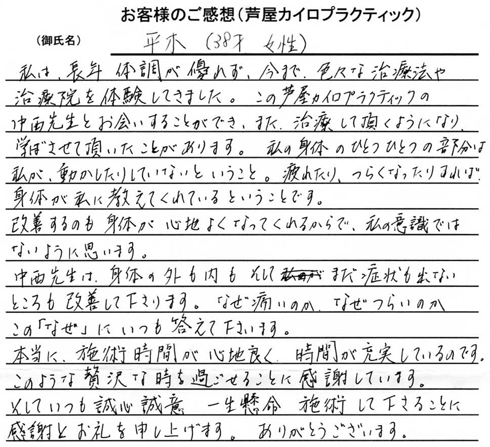 お客様のご感想(芦屋カイロプラクティック)
(御氏名) 平木 (38才 女性)
私は、長年 体調が優れず、今まで、色々な治療法や
治療院を体験してきました。この芦屋カイロプラクティックの
中西先生とお会いすることができ、また、治療して頂くようになり、
学ばさせて頂いたことがあります。私の身体のひとつひとつの部分は
私が、動かしたりしていないということ。疲れたり、つらくなったりすれば、
身体が私に教えてくれているということです。
改善するのも身体が心地よくなってくれるからで、私の意識では
ないように思います。
中西先生は、身体の外も内も そして まだ症状も出ない
ところも改善して下さります。なぜ痛いのか、なぜつらいのか
この「なぜ」にいつも答えて下さいます。
本当に、施術時間が心地良く、時間が充実しているのです。
このような贅沢な時を過ごせることに感謝しています。
そしていつも誠心誠意 一生懸命 施術して下さることに
感謝とお礼を申し上げます。ありがとうございます。